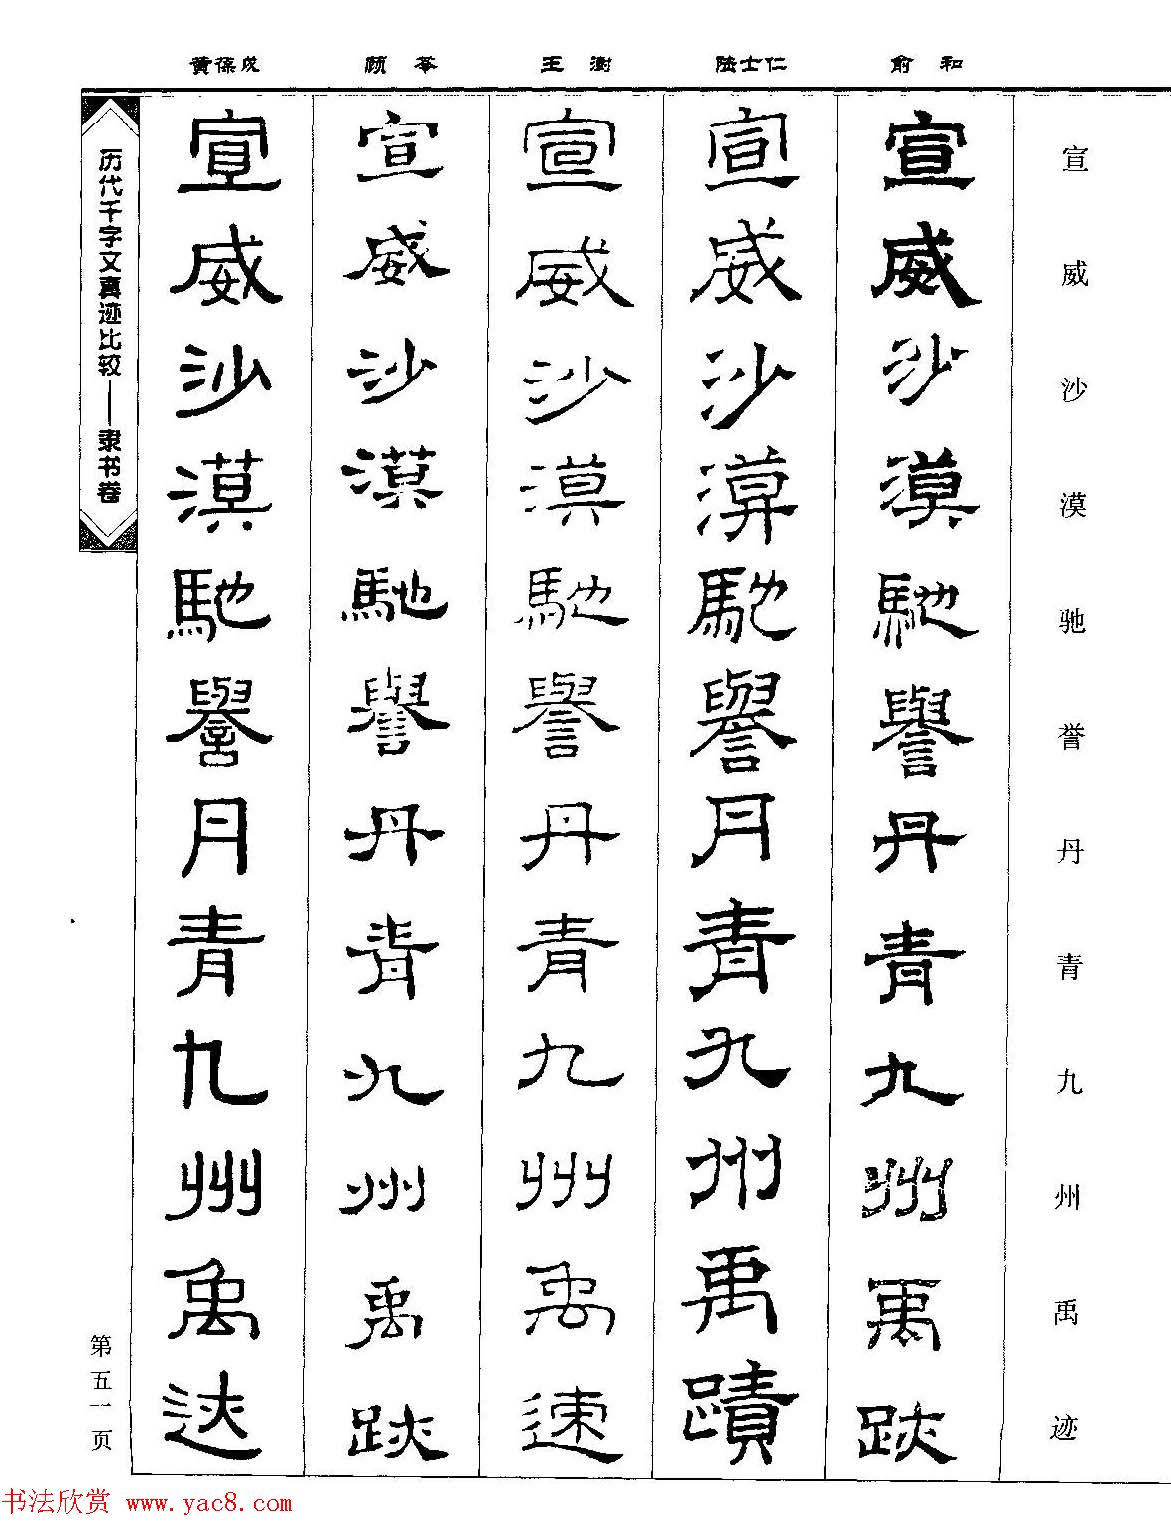 俞和
陆士仁
王澍
顾苓
黄葆戉
宣威沙漠驰誉丹青九州禹迹
宣威沙漠馳譽丹青九州禹跡
宣威沙漠馳譽丹青九州禹蹟
宣威沙漠馳譽丹青九州禹速
宣威沙漠馳譽丹青九州禹跡
宣威沙漠馳譽丹青九州禹迹
历代千字文真迹比较——隶书卷
第五一页
书法欣赏 www.yac8.com